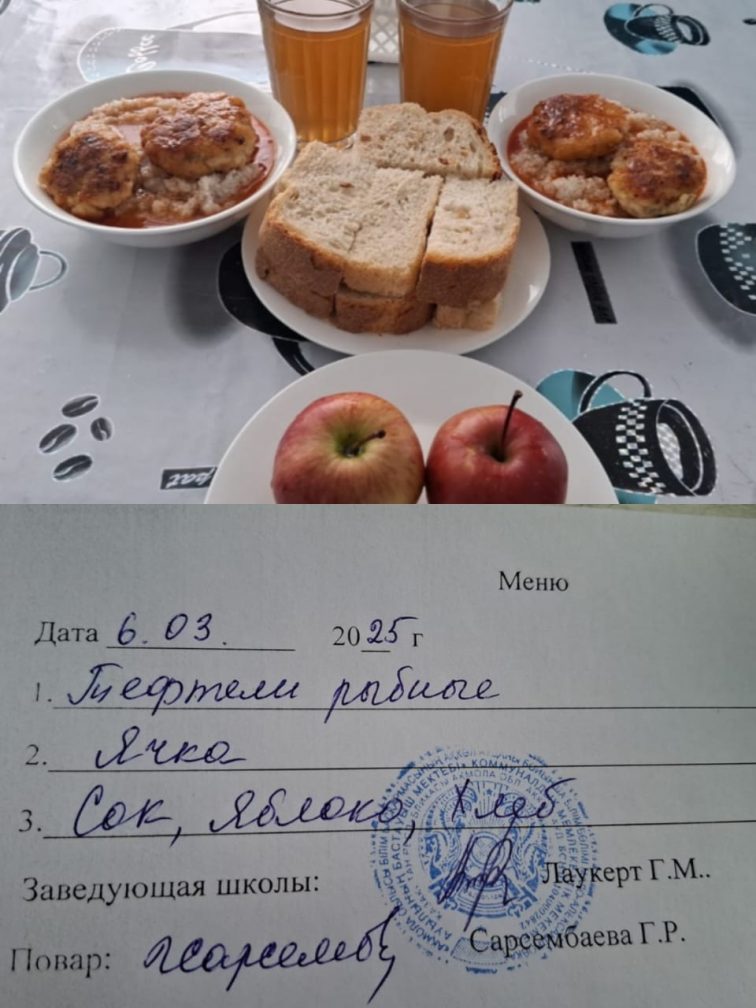 Coffee
Меню
Дата 6.03. 2025 г
1. Тефтели рыбные
2. Ячка
3. Сок, яблоко, хлеб
Заведующая школы: Лаукерт Г.М..
Повар: Сарсембаева Г.Р.